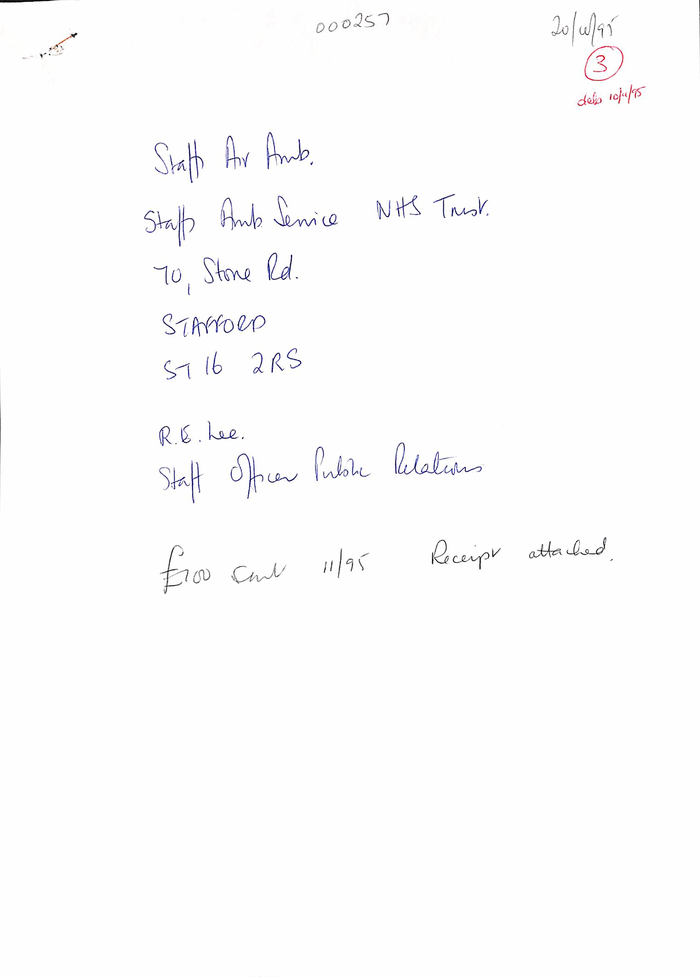 000257
20/10/95
3
date 10/11/95
Staffs Air Amb.
Staffs Amb. Service NHS Trust.
70, Stone Rd.
STAFFORD
ST16 2RS
R.E. Lee.
Staff Officer Public Relations
£700 sent 11/95 Receipt attached.